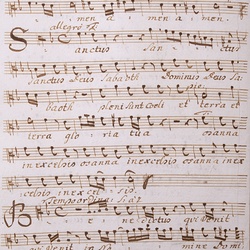 men amen amen
allegro
Sanctus San ctus
Sanctus Deus Sabaoth Dominus Deus Sa
baoth pleni sunt coeli et terra et
terra glo ria tua osanna
in excelsis osanna in excelsis osanna in ex
celsis in excel sis
Be ne dictus qui venit
qui venit in no mine Domi